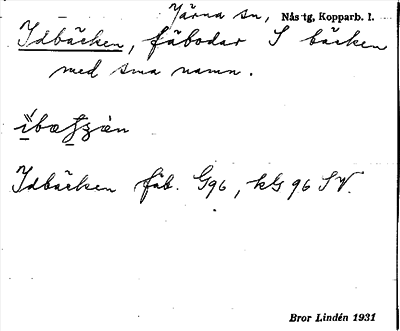 Järna sn, Nåstg, Kopparb. l.
Idbäcken, fäbodar S bäcken
med sma namn.
Idbäcken fäb. G96, kG 96 SV.
Bror Lindén 1931